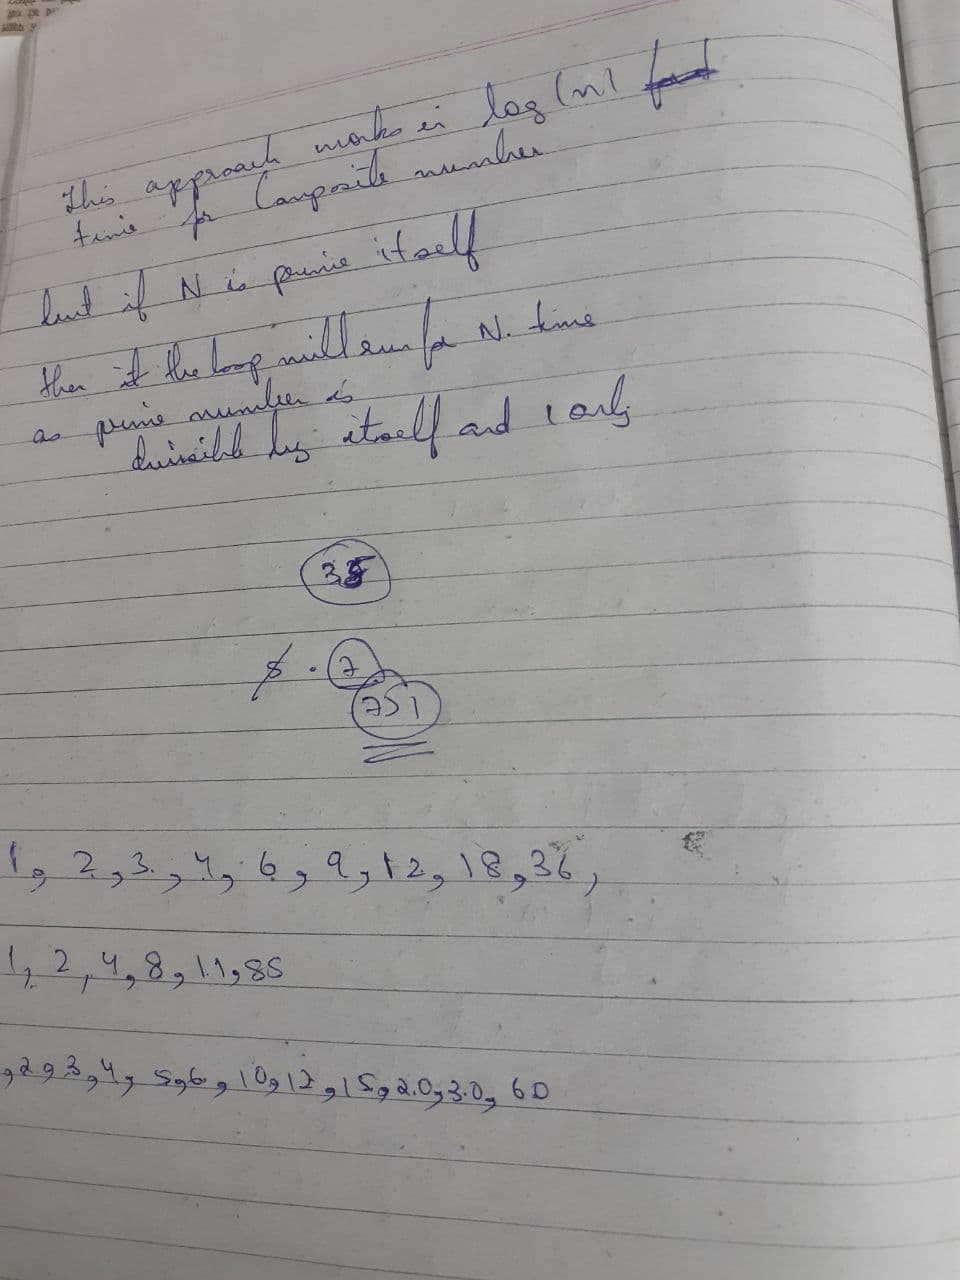 This approach works in log(n)
time for Composite number
but if N is prime itself
then the loop will run for N. time
as prime number is
divisible by itself and 1 only
35
5 . 7
751
1, 2, 3, 4, 6, 9, 12, 18, 36,
1, 2, 4, 8, 11, 85
, 2, 3, 4, 5, 6, 10, 12, 15, 20, 30, 60